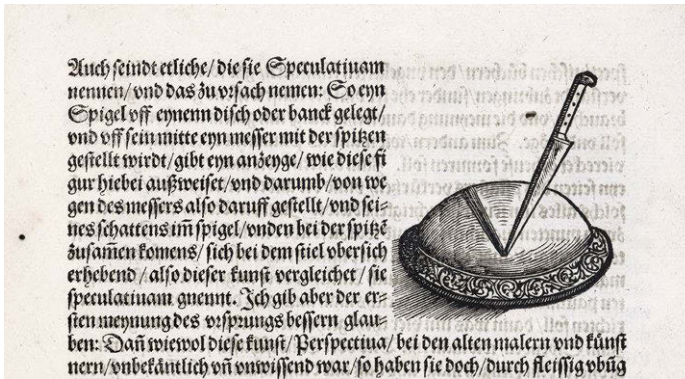 Auch seindt etliche/ die sie Speculatiuam
nennen/ vnd das zů vrsach nemen: So eyn
Spigel vff eynenn disch oder banck gelegt/
vnd vff sein mitte eyn messer mit der spitzen
gestellt wirdt/ gibt eyn anzeyge/ wie diese fi
gur hiebei außweiset/ vnd darumb/ von we
gen des messers also daruff gestellt/ vnd sei-
nes schattens im̃ spigel/ vnden bei der spitzẽ
zusamen komens/ sich bei dem stiel vbersich
erhebend/ also dieser kunst vergleichet/ sie
speculatiuam gnennt. Ich gib aber der er-
sten meynung des vrsprungs bessern glau-
ben: Dañ wiewol diese kunst/ Perspectiua/ bei den alten malern vnd künst
nern/ vnbekãntlich vñ vnwissend war/ so haben sie doch/ durch fleissig vbũg